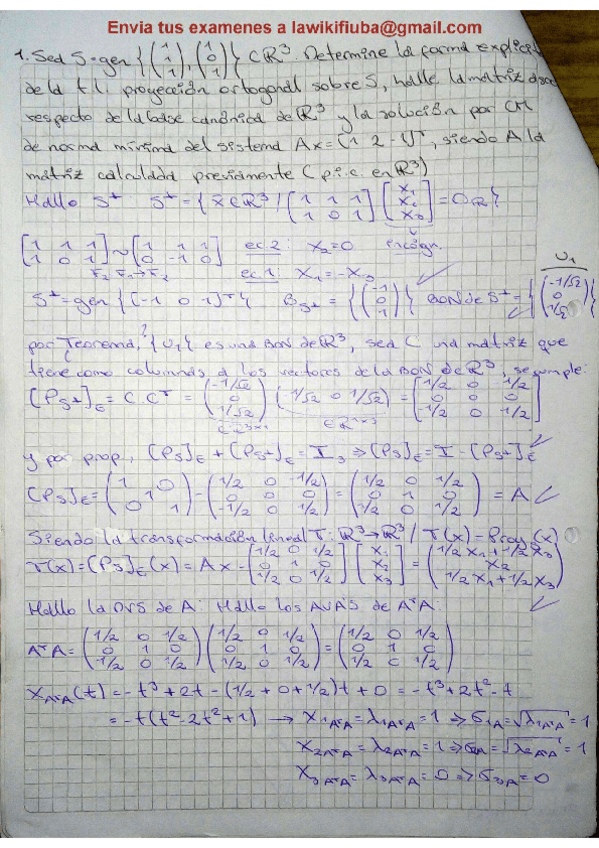 Envia tus examenes a lawikifiuba@gmail.com
1. Sea S=gen {(1 1 1), (1 0 1)} ⊂ ℝ³. Determine la forma explicita
de la t.l. proyección ortogonal sobre S, halle la matriz
respecto de la base canónica de ℝ³ y la solución por CM
de norma mínima del sistema Ax=[1 2 -1]ᵀ, siendo A la
matriz calculada previamente (p.i.c. en ℝ³)
Hallo S⊥: S⊥={x∈ℝ³/ [1 1 1; 1 0 1] [x₁; x₂; x₃] = 0 }
incógn.
[1 1 1; 1 0 1] ~ [1 1 1; 0 -1 0] ec.2: x₂=0
F₂-F₁→F₂ ec.1: x₁=-x₃
U₁
S⊥=gen {[-1 0 1]ᵀ} B_S⊥ = {(-1 0 1)} BON de S⊥= {(-1/√2 0 1/√2)}
?
por Teorema, {U₁} es una BON de ℝ³, sea C una matriz que
tiene como columnas a los vectores de la BON de ℝ³, se cumple:
[P_S⊥]_E = C.Cᵀ = (-1/√2; 0; 1/√2) (-1/√2 0 1/√2) = [1/2 0 -1/2; 0 0 0; -1/2 0 1/2]
∈ℝ³ˣ¹ ∈ℝ¹ˣ³
y por prop., [P_S]_E + [P_S⊥]_E = I₃ ⇒ [P_S]_E = I - [P_S⊥]_E
[P_S]_E = (1 0; 1; 0 1) - (1/2 0 -1/2; 0 0 0; -1/2 0 1/2) = (1/2 0 1/2; 0 1 0; 1/2 0 1/2) = A
Siendo la transformación lineal T: ℝ³→ℝ³/ T(x)=Proy (x)
T(x)=[P_S]_E(x) = Ax = [1/2 0 1/2; 0 1 0; 1/2 0 1/2] [x₁; x₂; x₃] = (1/2 x₁+1/2 x₃; x₂; 1/2 x₁+1/2 x₃)
Hallo la DVS de A: Hallo los AVAS de AᵀA:
AᵀA = (1/2 0 1/2; 0 1 0; 1/2 0 1/2) (1/2 0 1/2; 0 1 0; 1/2 0 1/2) = (1/2 0 1/2; 0 1 0; 1/2 0 1/2)
X_AᵀA(t) = -t³+2t-(1/2+0+1/2)t+0 = -t³+2t²-t
= -t(t²-2t²+1) → X₁AᵀA = λ₁AᵀA = 1 ⇒ σ₁A = √λ₁AᵀA = 1
X₂AᵀA = λ₂AᵀA = 1 ⇒ σ₂A = √λ₂AᵀA = 1
X₃AᵀA = λ₃AᵀA = 0 ⇒ σ₃A = 0